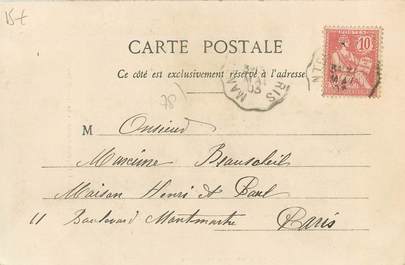 15€
CARTE POSTALE
Ce côté est exclusivement réservé à l'adresse
POSTES
10
03
78
M Onsieur
Maxime Beausoleil
Maison Henri et Paul
11 Boulevard Montmartre Paris